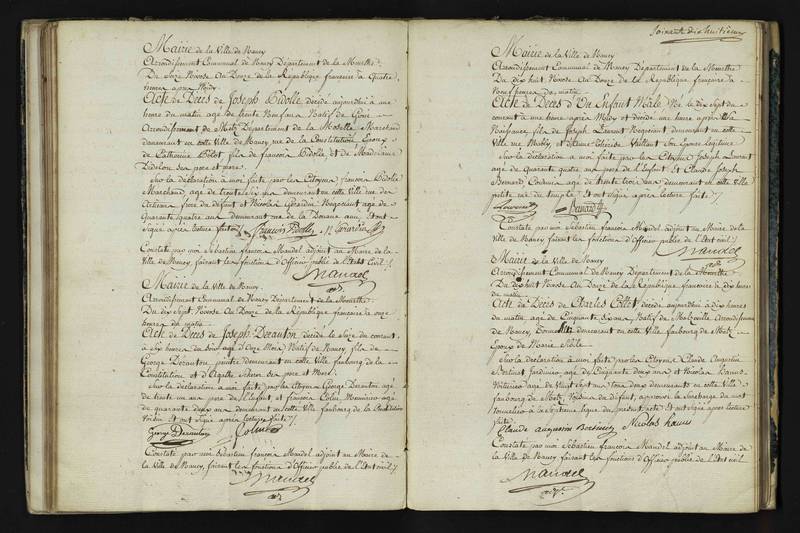 Mairie de la Ville de Nancy
Arrondissement Communal de Nancy Département de la Meurthe
Du Seize Nivose An Douze de la République françoise à quatre
heures après Midy
Acte de Deces de Joseph Didolle décédé aujourd'hui à une
heure du matin agé de trente
Arrondissement de Metz Département de la Moselle Marchand
demeurant en cette Ville de Nancy rue de la Constitution Epoux
de Catherine fils de françois Didolle et de Magdelaine
Didelon ses pere et mere
Sur la déclaration à moi faite par les Citoyens françois Didolle
Marchand agé de trente six ans demeurant en cette Ville rue des
Artisans frere du defunt et Nicolas Gerardin Negociant agé de
Quarante quatre ans demeurant rue de la Douane ami et ont
signé après lecture faite
françois Didolle N Gerardin
Constaté par moi Sébastien françois Mandel adjoint au Maire de la
Ville de Nancy, faisant les fonctions d'Officier public de l'Etat Civil
Mandel
adj.
Mairie de la Ville de Nancy
Arrondissement Communal de Nancy Département de la Meurthe
Du dix Sept Nivose An Douze de la République françoise à onze
heures du matin
Acte de Deces de Joseph Derauton décédé le Seize du courant
à Six heures du Soir agé d'Onze Mois Natif de Nancy fils de
George Derauton peintre demeurant en cette Ville faubourg de la
Constitution et d'Agathe ses pere et Mere
Sur la déclaration à moi faite par les Citoyens George Derauton agé
de trente un ans pere de l'Enfant et françois Colin Menuisier agé
de quarante deux ans demeurant en cette Ville faubourg de la Constitution
Voisin Et ont signé après lecture faite
George Derauton Colin
Constaté par moi Sébastien françois Mandel adjoint au Maire de
la Ville de Nancy, faisant les fonctions d'Officier public de l'Etat civil
Mandel
adj.
Soixante dix huitieme
Mairie de la Ville de Nancy
Arrondissement Communal de Nancy Département de la Meurthe
Du dix huit Nivose An Douze de la République françoise à
Neuf heures du matin
Acte de Deces d'Un Enfant Male Né le dix Sept du
courant à une heure après Midy et décédé une heure après
Naissance fils de Joseph Laurent Negociant demeurant en cette
Ville rue Mably, et d'Anne Thérèse Vaillant Son Epouse Legitime
Sur la déclaration à moi faite par les Citoyens Joseph Laurent
agé de Quarante quatre ans pere de l'Enfant et Claude Joseph
Bernard agé de trente trois ans demeurant en cette Ville
petite rue du temple Et ont signé après lecture faite
Laurent Bernard
Constaté par moi Sébastien françois Mandel adjoint au Maire de la
Ville de Nancy faisant les fonctions d'Officier public de l'Etat civil
Mandel
adj.
Mairie de la Ville de Nancy
Arrondissement Communal de Nancy Département de la Meurthe
Du dix huit Nivose An Douze de la République françoise à dix heures
du matin
Acte de Deces de Charles décédé aujourd'hui à dix heures
du matin agé de Cinquante six ans Natif de Malzeville Arrondissement
de Nancy, demeurant en cette Ville faubourg de Metz
Epoux de Marie
Sur la déclaration à moi faite par les Citoyens Claude Augustin
Jardinier agé de Cinquante deux ans et Nicolas
agé de Vingt sept ans tous deux demeurants en cette Ville
faubourg de Metz Voisins du défunt, approuvé la surcharge du mot
tonnelier à la septieme ligne du présent acte Et ont signé après lecture
faite
Claude augustin Nicolas
Constaté par moi Sébastien françois Mandel adjoint au Maire de
la Ville de Nancy faisant les fonctions d'Officier public de l'Etat civil
Mandel
adj.